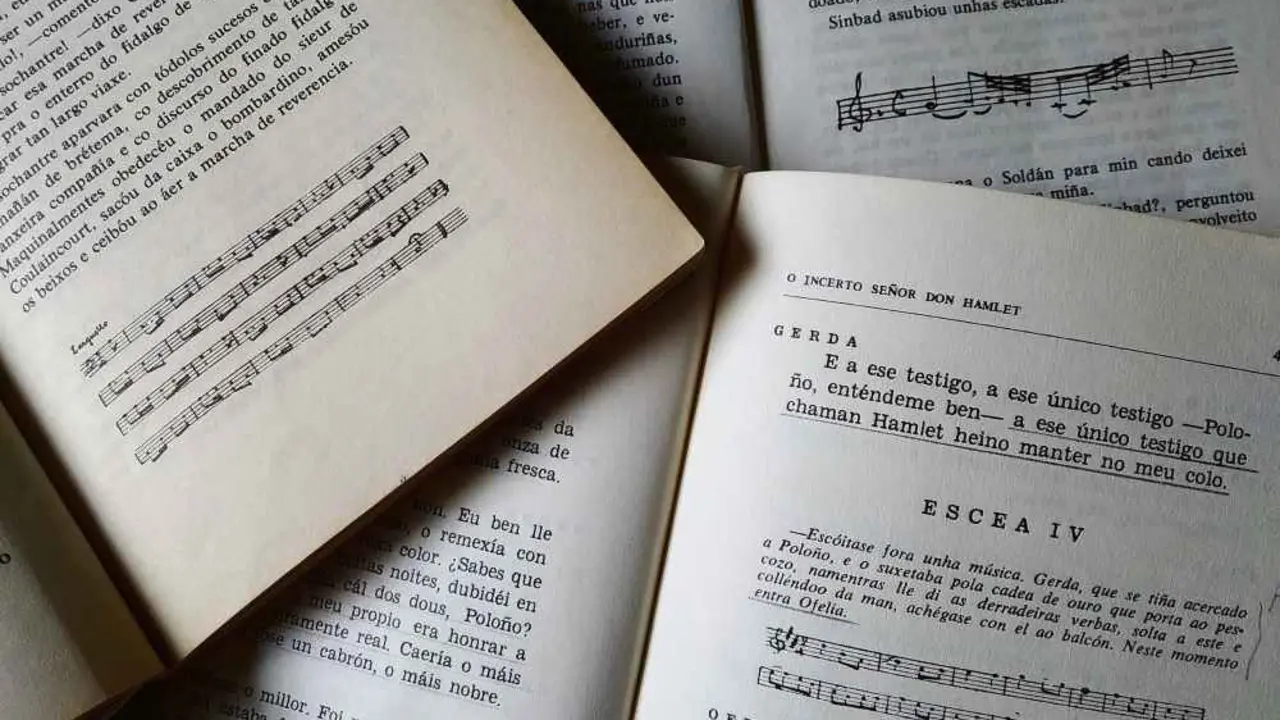 ser un m
lo!, —comen
sochantre! —dixo
car esa marcha de reve
pra o enterro do fidalgo de
grar tan largo viaxe.
sochantre aparvara con tódolos sucesos
mañán de brétema, co descobrimento de
anxeira compañía e co discurso do finado fidalg
Maquinalmentes obedecéu o mandado do sieur de
Coulaincourt, sacóu da caixa o bombardino, amesóu
os beixos e ceibóu ao áer a marcha de reverencia.
nas que
eber, e ve-
nduriñas,
umado.
dun
ña e
que
doado,
Sinbad asubiou unhas escadas.
o Soldán para min cando deixei
miña.
nbad?, perguntou
nvolveito
s da
onza de
fresca.
Eu ben lle
o remexía con
color. ¿Sabes que
tas noites, dubidéi en
cál dos dous, Poloño?
meu propio era honrar a
ramente real. Caería o máis
se un cabrón, o máis nobre.
o millor. Foi
estaba
O INCERTO SEÑOR DON HAMLET
GERDA
E a ese testigo, a ese único testigo —Polo-
ño, enténdeme ben— a ese único testigo que
chaman Hamlet heino manter no meu colo.
ESCEA IV
—Escóitase fora unha música. Gerda, que se tiña acercado
a Poloño, e o suxetaba pola cadea de ouro que porta ao pes-
cozo, namentras lle di as derradeiras verbas, solta a este e
colléndoo da man, achégase con el ao balcón. Neste momento
entra Ofelia.